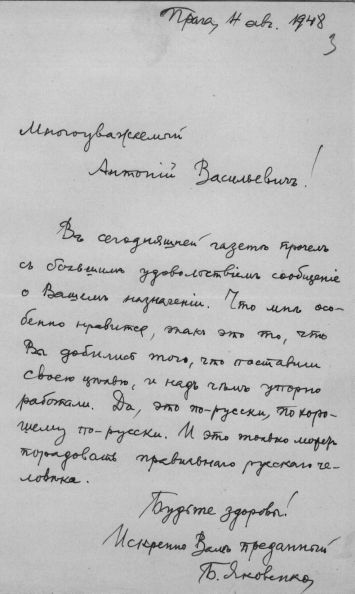 Прага, 4 авг. 1948
3
Многоуважаемый
Антоній Васильевичъ!
Въ сегодняшней газетѣ прочелъ
съ большимъ удовольствіемъ сообщеніе
о Вашемъ назначеніи. Что мнѣ осо-
бенно нравится, такъ это то, что
Вы добились того, что поставили
своею цѣлью, и надъ чѣмъ упорно
работали. Да, это по-русски, по хоро-
шему по-русски. И это только можетъ
порадовать правильнаго русскаго че-
ловѣка.
Будьте здоровы!
Искренно Вамъ преданный
Б. Яковенко